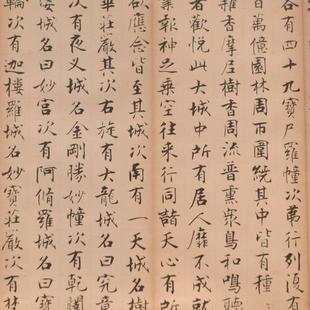 各有四十九寶尸羅幢次第行列復有
百萬億園林周匝圍繞其中皆有種
雜香摩尼樹香周流普熏眾鳥和鳴聽
者歡悅此大城中所有居人靡不成就
業報神足乘空往來行同諸天心有所
欲應念皆至其城次南有一天城名樹
華莊嚴其次右旋有大龍城名曰究竟
次有夜叉城名金剛勝妙幢次有乾闥
婆城名曰妙宮次有阿脩羅城名曰寶
輪次有迦樓羅城名妙寶莊嚴次有